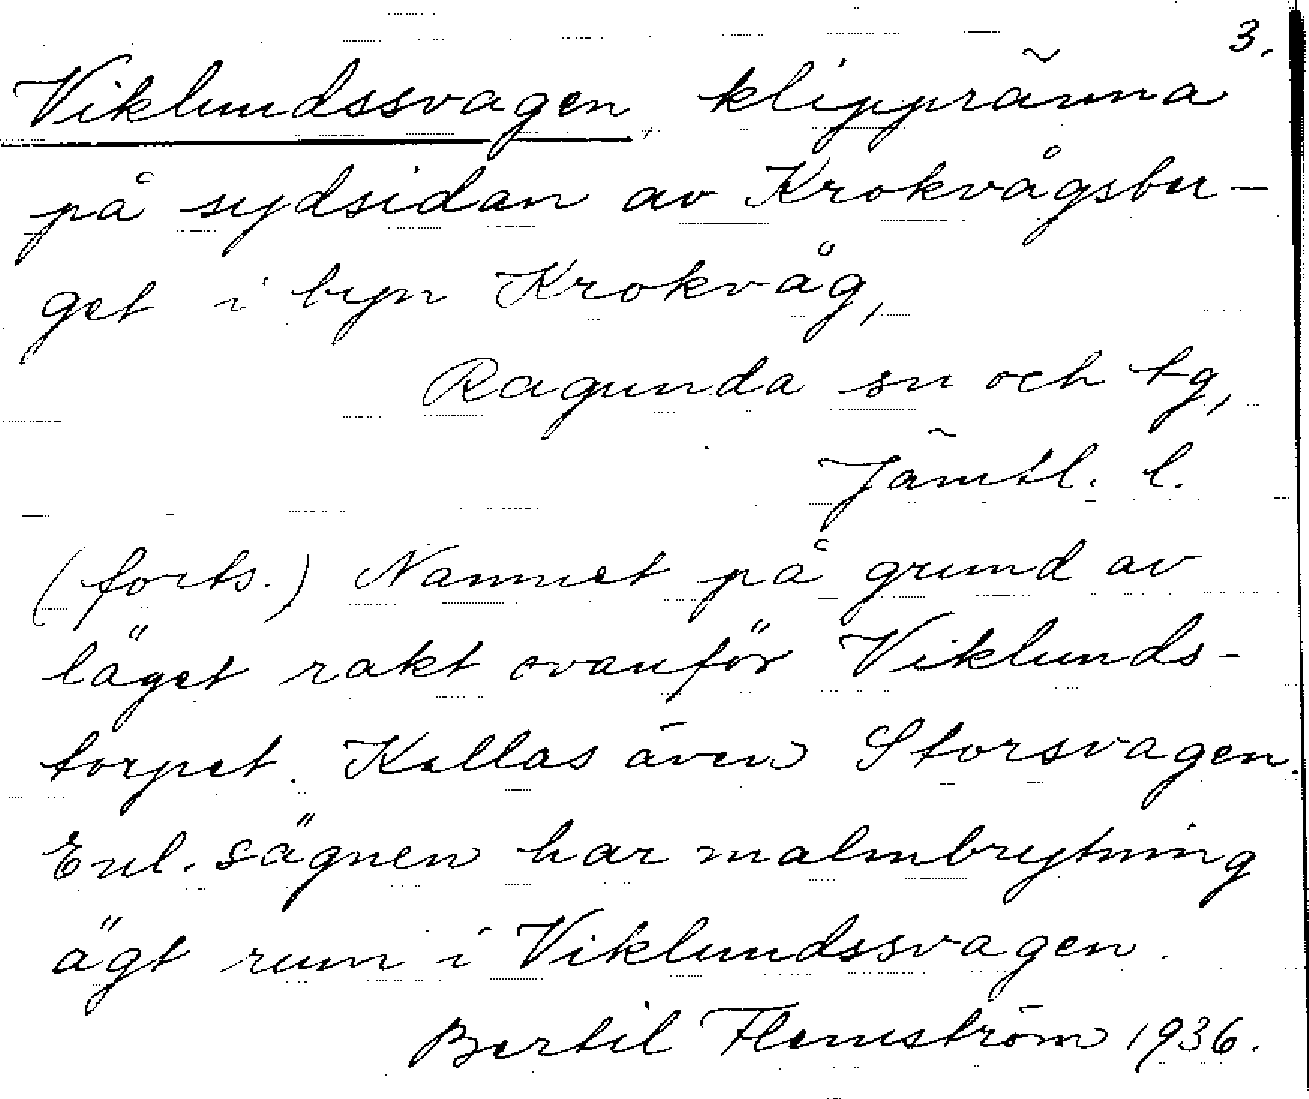 3.
Viklundssvagen klippränna
på sydsidan av Krokvågsber-
get i byn Krokvåg,
Ragunda sn och tg,
Jämtl. l.
(forts.) Namnet på grund av
läget rakt ovanför Viklunds-
torpet. Kallas även Storsvagen.
Enl. sägnen har malmbrytning
ägt rum i Viklundssvagen.
Bertil Flemström 1936.